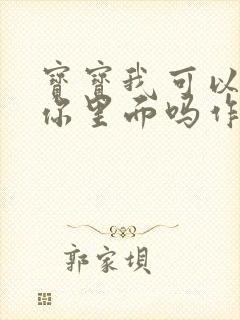 寶寶我可以
你里而吗作
郭家坝